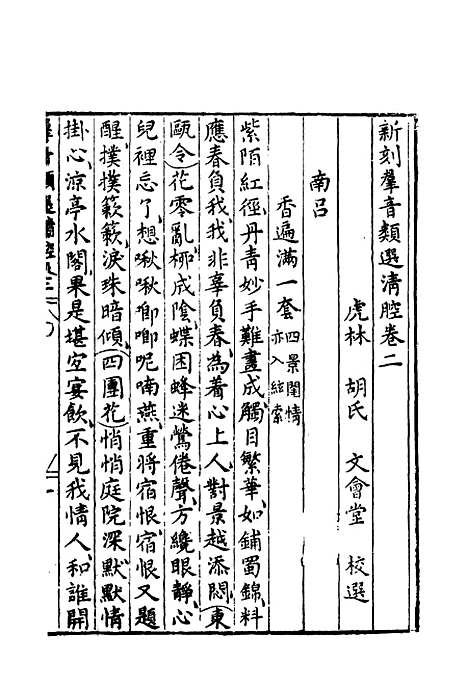 新刻羣音類選清腔卷二
虎林 胡氏 文會堂 校選
南呂
香遍滿一套 四景閨情 亦入絃索
紫陌紅徑丹青妙手難畫成觸目繁華如鋪蜀錦料
應春負我我非辜負春為着心上人對景越添悶(東
甌令)花零亂柳成陰蝶困蜂迷鶯倦聲方纔眼靜心
兒裡忘了想啾啾唧唧呢喃燕重將宿恨宿恨又題
醒撲撲簌簌淚珠暗傾(四團花)悄悄庭院深默默情
掛心涼亭水閣果是堪宜宴飲不見我情人和誰開